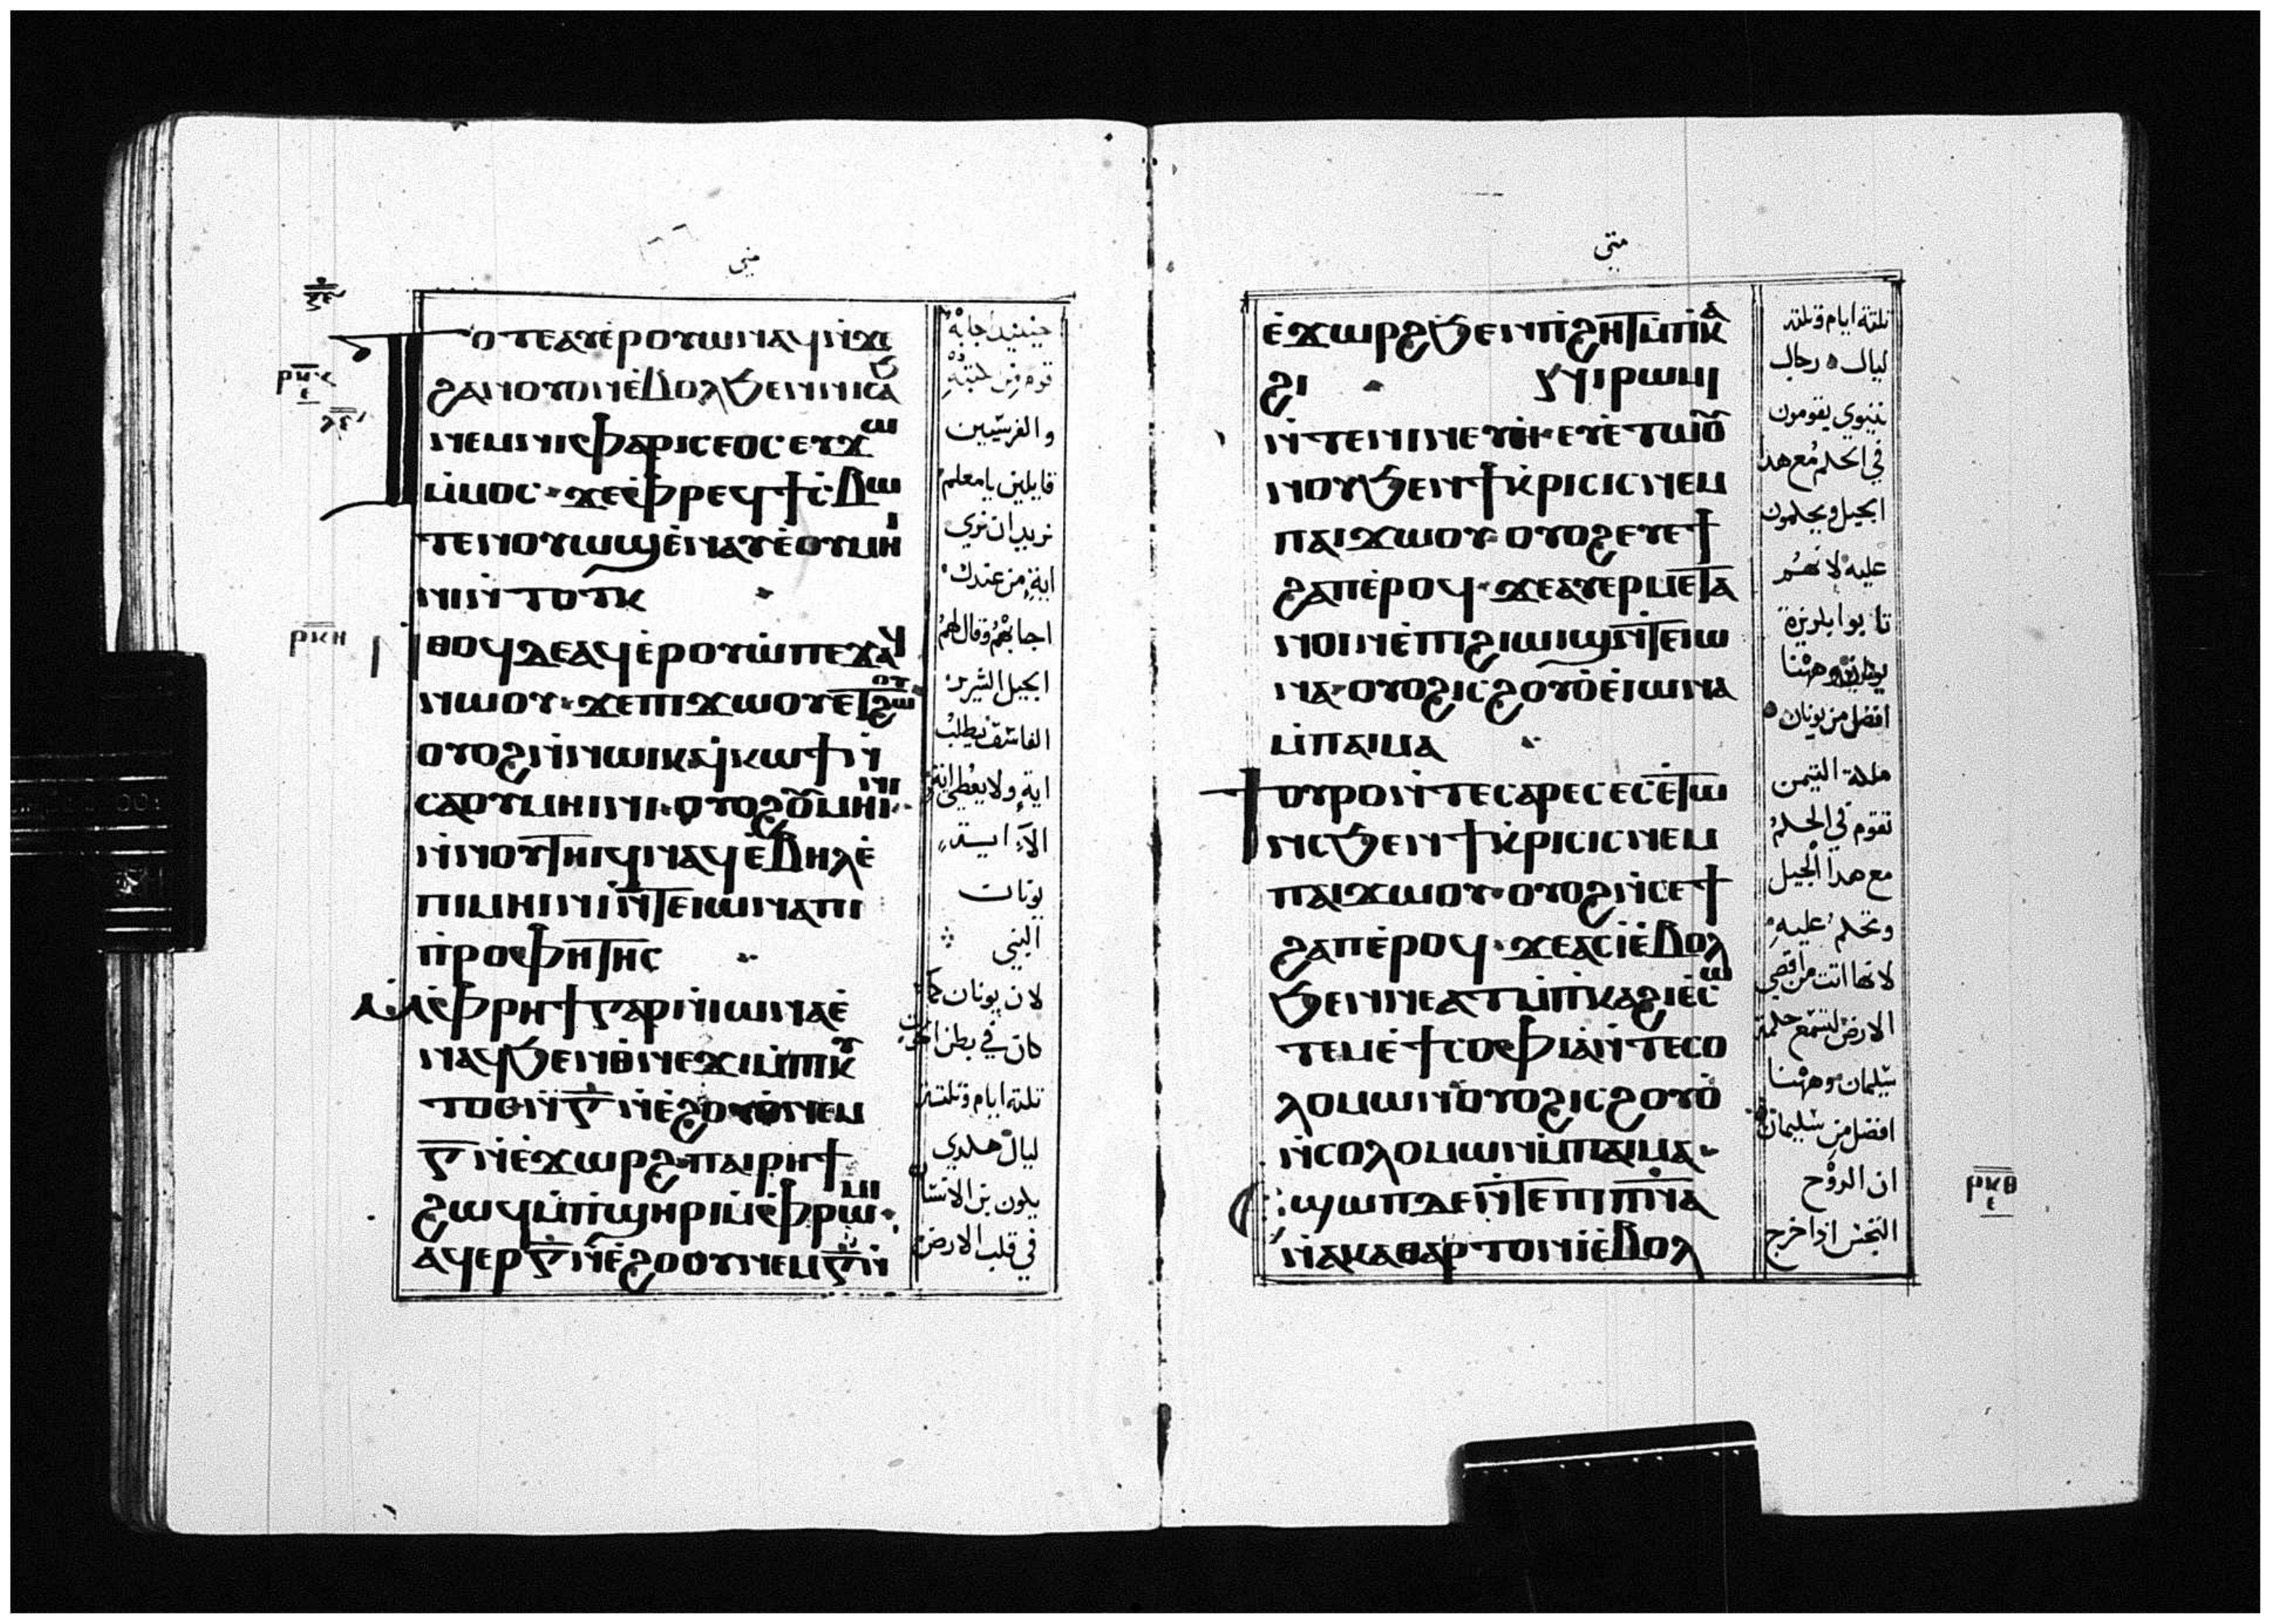 متى
ⲝⲉ
ⲣⲕⲍ
ⲗⲉ
Ⲧⲟⲧⲉⲁⲩⲉ̀ⲣⲟⲩⲱⲛⲁϥⲛ̀ϫⲉ
ϩⲁⲛⲟⲩⲟⲛⲉ̀ⲃⲟⲗϧⲉⲛⲛⲓⲥⲁϧ
ⲛⲉⲙⲛⲓⲫⲁⲣⲓⲥⲉⲟⲥⲉⲩϫⲱ
ⲙ̀ⲙⲟⲥ·ϫⲉⲫ̀ⲣⲉϥϯⲥ̀ⲃⲱ
ⲧⲉⲛⲟⲩⲱϣⲉ̀ⲛⲁⲩⲉ̀ⲟⲩⲙⲏⲓ
ⲛⲓⲛ̀ⲧⲟⲧⲕ
ⲣⲕⲏ
ⲛⲑⲟϥⲇⲉⲁϥⲉ̀ⲣⲟⲩⲱ̀ⲡⲉϫⲁϥ
ⲛⲱⲟⲩ·ϫⲉⲡⲓϫⲱⲟⲩⲉⲧϩⲱⲟⲩ
ⲟⲩⲟϩⲛ̀ⲛⲱⲓⲕϥⲕⲱϯⲛ̀
ⲥⲁⲟⲩⲙⲏⲓⲛⲓ·ⲟⲩⲟϩⲟⲩⲙⲏⲓⲛⲓ·
ⲛ̀ⲛⲟⲩⲧⲏⲓϥⲛⲁϥⲉ̀ⲃⲏⲗⲉ̀
ⲡⲓⲙⲏⲓⲛⲓⲛ̀ⲧⲉⲓⲱⲛⲁⲡⲓ
ⲡ̀ⲣⲟⲫⲏⲧⲏⲥ
ⲙ̀ⲫⲣⲏϯⲅⲁⲣⲛ̀ⲓⲱⲛⲁⲉ̀
ⲛⲁϥϧⲉⲛⲑ̀ⲛⲉϫⲓⲙ̀ⲡⲓⲕⲩ
ⲧⲟⲥⲛ̀ⲅ̅ⲛ̀ⲉ̀ϩⲟⲟⲩⲛⲉⲙ
ⲅ̅ⲛ̀ⲉ̀ϫⲱⲣϩ·ⲡⲁⲓⲣⲏϯ
ϩⲱϥⲙ̀ⲡ̀ϣⲏⲣⲓⲙ̀ⲫ̀ⲣⲱⲙⲓ·
ⲁϥⲉⲣⲅ̅ⲛ̀ⲉ̀ϩⲟⲟⲩⲛⲉⲙⲅ̅ⲛ̀
حينيد اجابه
قوم من كتبه
والفريسيين
قايلين يا معلم
نريد ان نري
اية من عندك
اجابهم وقال لهم
الجيل الشرير
الفاسق يطلب
اية ولا يعطى اية
الا اية
يونان
النبي
لان يونان كما
كان في بطن الحوت
تلتة ايام وتلتة
ليال هكدي
يكون بن الانسان
في قلب الارض
متى
ⲉ̀ϫⲱⲣϩϧⲉⲛⲡ̀ϩⲏⲧⲙ̀ⲡ̀ⲕⲁ
ϩⲓ ⲛⲓⲣⲱⲙⲓ
ⲛ̀ⲧⲉⲛⲓⲛⲉⲩⲏ·ⲉⲩⲉ̀ⲧⲱⲟⲩ
ⲛⲟⲩϧⲉⲛϯⲕ̀ⲣⲓⲥⲓⲥⲛⲉⲙ
ⲡⲁⲓϫⲱⲟⲩ·ⲟⲩⲟϩⲉⲩⲉϯ
ϩⲁⲡⲉ̀ⲣⲟϥ·ϫⲉⲁⲩⲉⲣⲙⲉⲧⲁ
ⲛⲟⲓⲛⲉ̀ⲡⲓϩⲓⲱⲓϣⲛ̀ⲧⲉⲓⲱ
ⲛⲁ·ⲟⲩⲟϩⲓⲥϩⲟⲩⲟ̀ⲉ̀ⲓⲱⲛⲁ
ⲙ̀ⲡⲁⲓⲙⲁ
ϯⲟⲩⲣⲟⲛ̀ⲧⲉⲥⲁⲣⲏⲥⲉⲥⲉ̀ⲧⲱ
ⲛⲥϧⲉⲛϯⲕ̀ⲣⲓⲥⲓⲥⲛⲉⲙ
ⲡⲁⲓϫⲱⲟⲩ·ⲟⲩⲟϩⲛ̀ⲥⲉϯ
ϩⲁⲡⲉ̀ⲣⲟϥ·ϫⲉⲁⲥⲓ̀ⲉ̀ⲃⲟⲗ
ϧⲉⲛⲛⲉⲁⲧⲙ̀ⲡ̀ⲕⲁϩⲓⲉ̀ⲥⲱ
ⲧⲉⲙⲉ̀ϯⲥⲟⲫⲓⲁⲛ̀ⲧⲉⲥⲟ
ⲗⲟⲙⲱⲛⲟⲩⲟϩⲓⲥϩⲟⲩⲟ̀
ⲛ̀ⲥⲟⲗⲟⲙⲱⲛⲙ̀ⲡⲁⲓⲙⲁ·
ⲉϣⲱⲡⲇⲉⲛ̀ⲧⲉⲡⲓⲡ̅ⲛ̅ⲁ
ⲛ̀ⲁⲕⲁⲑⲁⲣⲧⲟⲛⲓ̀ⲉ̀ⲃⲟⲗ
تلتة ايام وتلتة
ليال رجال
نينوي يقومون
في الحكم مع هدا
الجيل ويحكمون
عليه لانهم
تابوا بكريزة
يونان وههنا
افضل من يونان
ملكة التيمن
تقوم في الحكم
مع هدا الجيل
وتحكم عليه
لانها اتت من اقصي
الارض لتسمع حكمة
سليمان وههنا
افضل من سليمان
ان الروح
النجس ادا خرج
ⲣⲕⲑ
ⲉ